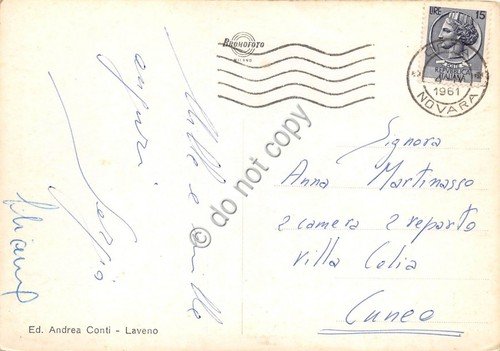 BROMOFOTO
MILANO
LIRE 15
1961
NOVARA
Mille e mille
auguri
Sergio
Signora
Anna Martinasso
2 camera 2 reparto
Villa Celia
Cuneo
Ed. Andrea Conti - Laveno
© do not copy